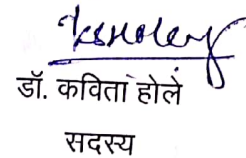 डॉ. कविता होले
सदस्य